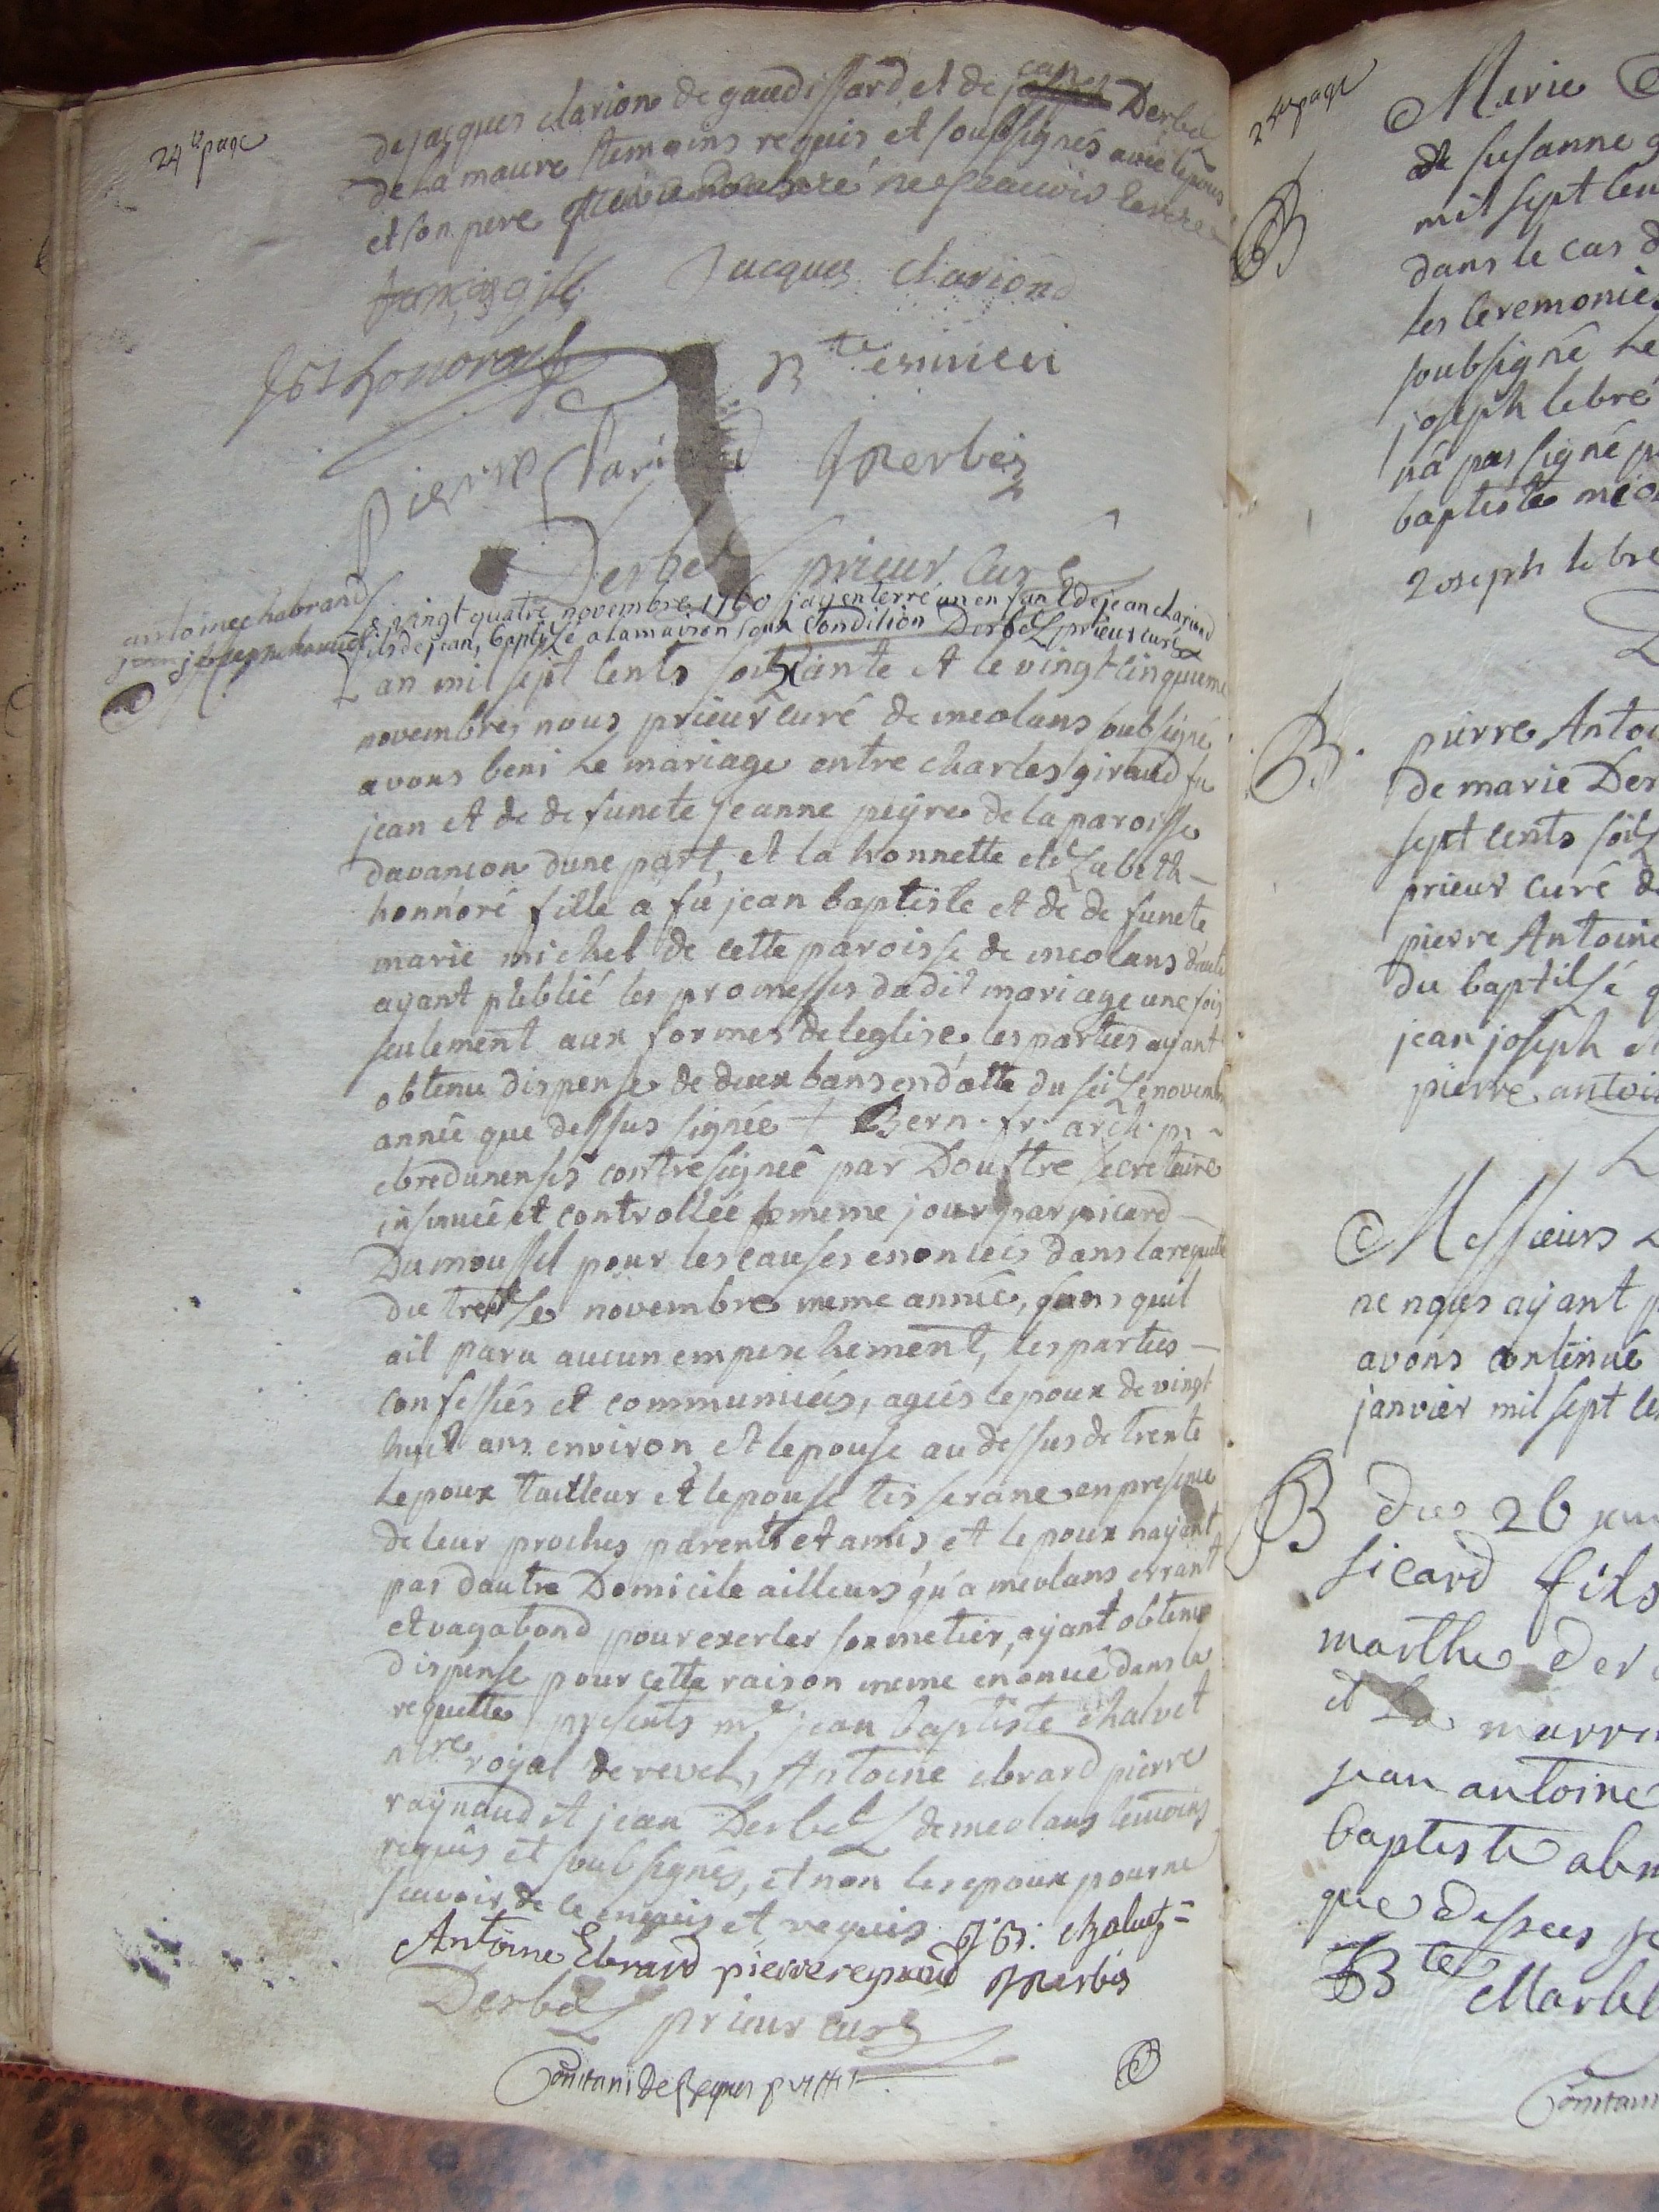 24e page
de jacques clarion de gaudissard et de jean Derbez
de la maure temoins requis et soubsignés avec lepoux
et son pere
jacques clariond
Jst honnorat
Bte esmieu
pierre clariond J Derbés
Derbez prieur curé
antoine chabrand
Le vingt quatre novembre 1760 jay enterré un enfant de jean clariond
fils de jean, baptisé a la maison sous condition Derbez prieur curé
L an mil sept cents soixante et le vingt cinquieme
novembre, nous prieur curé de meolans soubsigné
avons beni le mariage entre charles giraud fu
jean et de defuncte jeanne peyre de la paroisse
davançon dune part, et la honnette elizabeth
honnoré fille a fu jean baptiste et de defuncte
marie michel de cette paroisse de meolans dautre
ayant pleblié les promesses dudit mariage une fois
seulement aux formes de leglise, les parties ayant
obtenu dispense de deux bans en datte du seize novembre
année que dessus signée + Bern. fr. arch. pr
ebredunensis contresignée par Doustre secretaire
insinuée et controllée le meme jour par picard
Dumoussel pour les causes enoncées dans la requette
du treize novembre meme année, sans quil
ait paru aucun empeschement, les parties
confessées et communiées, agées lepoux de vingt
huit ans environ et lepouse au dessus de trente
Lepoux tailleur et lepouse tisserane en presence
de leur proches parents et amis et lepoux nayant
pas dautre Domicile ailleurs qu'a meolans errant
et vagabond pour exercer son metier, ayant obtenu
dispense pour cette raison meme enoncée dans la
requette presents me jean baptiste chalvet
nre royal de revel, Antoine ebrard pierre
raynaud et jean Derbez de meolans temoins
requis et soubsignés, et non les epoux pour ne
scavoir de ce enquis et requis J.B. chalvet
Antoine Ebrard pierre reynaud J Derbés
Derbez prieur curé
25e page
Marie
de susanne
mil sept cen
dans le cas d
les ceremonies
soubsigné Le
joseph lebré
na pas signé p
baptiste meo
Joseph lebre
B. pierre Antoi
de marie Der
sept cents soix
prieur curé de
pierre Antoine
du baptisé q
jean joseph
pierre antoi
Messieurs L
ne nous ayant p
avons continué
janvier mil sept ce
B du 26 jan
sicard fils
marthe der
et la marra
jean antoine
baptiste
que dessus
Bte Martel